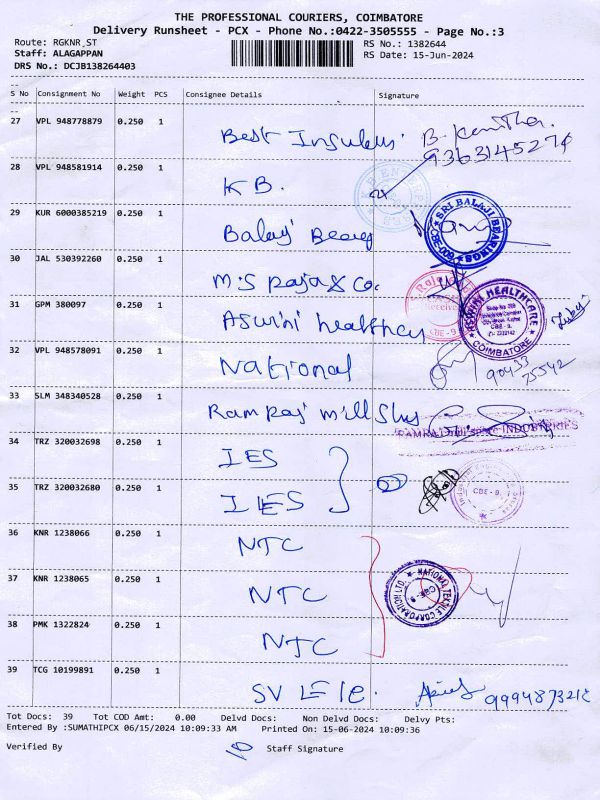 THE PROFESSIONAL COURIERS, COIMBATORE
Delivery Runsheet - PCX - Phone No.:0422-3505555 - Page No.:3
Route: RGKNR_ST
RS No.: 1382644
Staff: ALAGAPPAN
RS Date: 15-Jun-2024
DRS No.: DCJB138264403
S No Consignment No Weight PCS Consignee Details Signature
27 VPL 948778879 0.250 1 Best B. Kavitha.
9363145274
28 VPL 948581914 0.250 1 K B.
29 KUR 6000385219 0.250 1 Balaji SRI BALAJI BEARINGS CBE-009
30 JAL 530392260 0.250 1 M.S Raja & Co.
31 GPM 380097 0.250 1 Aswini healthcey ASWINI HEALTHCARE COIMBATORE CBE-9
32 VPL 948578091 0.250 1 National 90433
75542
33 SLM 348340528 0.250 1 Ram raj mill INDUSTRIES
34 TRZ 320032698 0.250 1 IES
35 TRZ 320032680 0.250 1 IES CBE-9.
36 KNR 1238066 0.250 1 NTC
37 KNR 1238065 0.250 1 NTC NATIONAL TEXTILE CORPORATION LTD. CBE-9
38 PMK 1322824 0.250 1 NTC
39 TCG 10199891 0.250 1 SV
Tot Docs: 39 Tot COD Amt: 0.00 Delvd Docs: Non Delvd Docs: Delvy Pts:
Entered By :SUMATHIPCX 06/15/2024 10:09:33 AM Printed On: 15-06-2024 10:09:36
Verified By Staff Signature